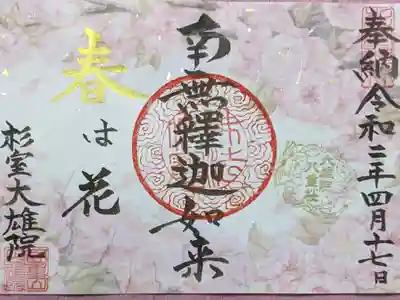 奉納令和二年四月十七日
南無釋迦如来
春は花
杉室大雄院